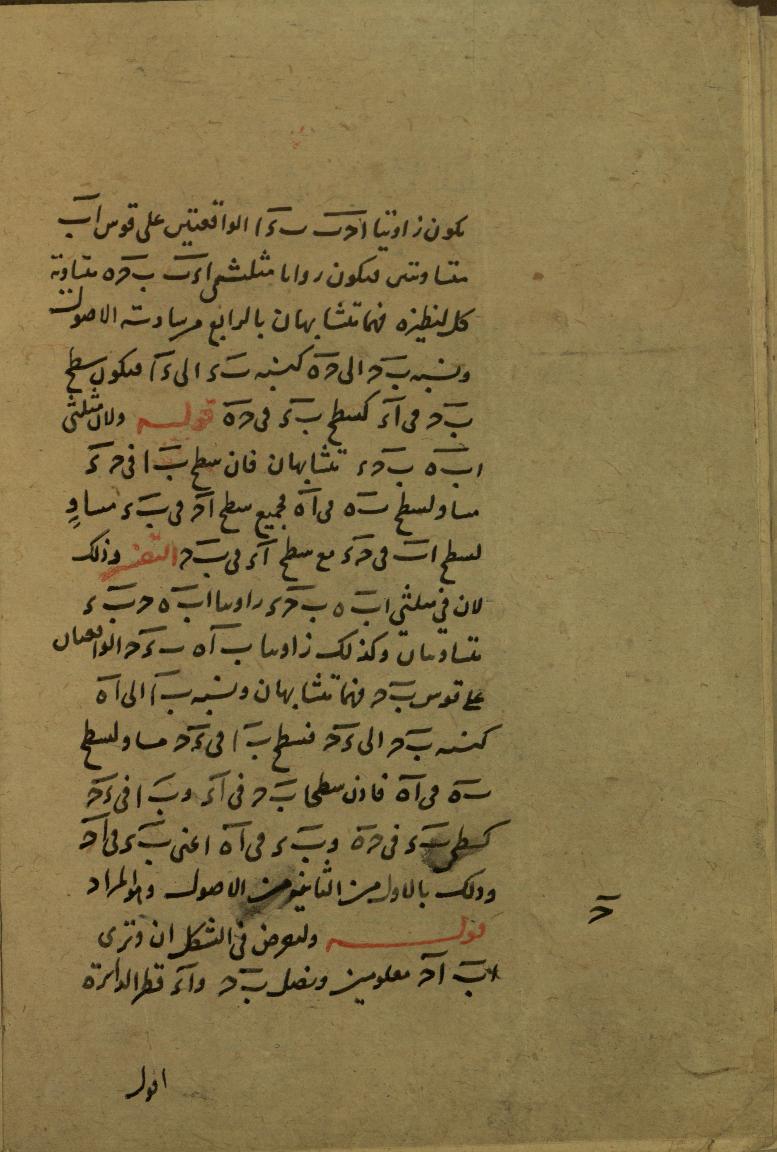 تكون زاويتا احب ب ء ا الواقعتين على قوس اب
متساويتين فيكون زوايا مثلثى اء ب ب ح ه متساوية
كل لنظيره فهما متشابهان بالرابع من سادسة الاصول
ونسبه ب ح الى ح ه كنسبه ب ء الى ء ا فيكون سطح
ب ح فى ا ء كسطح ب ء فى ح ه قوله ولان مثلثى
ا ب ه ب ح ء متشابهان فان سطح ب ا فى ح ء
مساو لسطح ب ه فى ا ه فجميع سطح ا ح فى ب ء مساوٍ
لسطح ا ب فى ح ء مع سطح ا ء فى ب ح التفسير وذلك
لان في مثلثى ا ب ه ب ح ء زاويتا ا ب ه ح ب ء
متساويتان وكذلك زاويتا ب ا ه ب ء ح الواقعتان
على قوس ب ح فهما متشابهان ونسبه ب ا الى ا ه
كنسبه ب ح الى ء ح فسطح ب ا فى ء ح مساو لسطح
ب ه فى ا ه فاذن سطحا ب ح فى ا ء و ب ا فى ء ح
كسطحى ب ء فى ح ه و ب ء فى ا ه اعنى ب ء فى ا ح
وذلك بالاول من الثانية من الاصول وهو المراد
ح
قوله وليعرض فى الشكل ان وترى
ا ب ا ح معلومين ونصل ب ح و ا ء قطر الدائرة
اقول